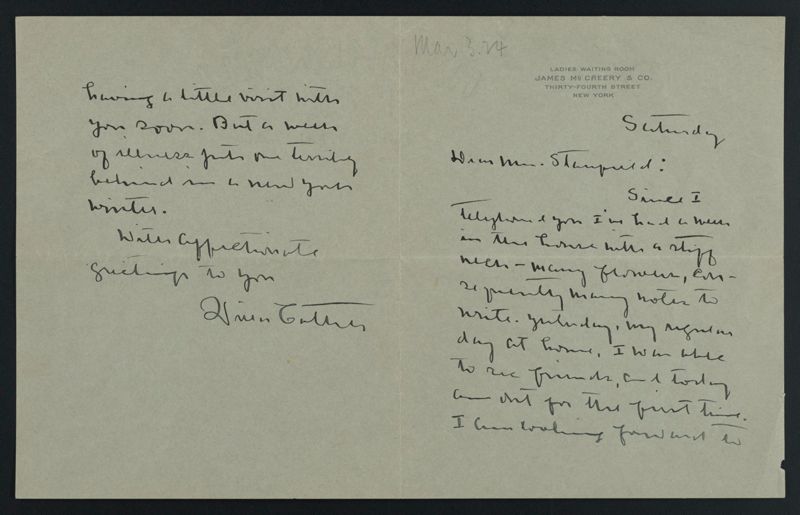 Mar 3. 24
LADIES WAITING ROOM
JAMES Mc CREERY & CO.
THIRTY-FOURTH STREET
NEW YORK
Saturday
Dear Mrs. Stanfield:
Since I
telephoned you I've had a week
in the house with a stiff
neck – many flowers, con-
sequently many notes to
write. Yesterday, my regular
day at home, I was able
to see friends, and today
am out for the first time.
I am looking forward to
having a little visit with
you soon. But a week
of illness puts one terribly
behind in a New York
winter.
With affectionate
greetings to you
Willa Cather